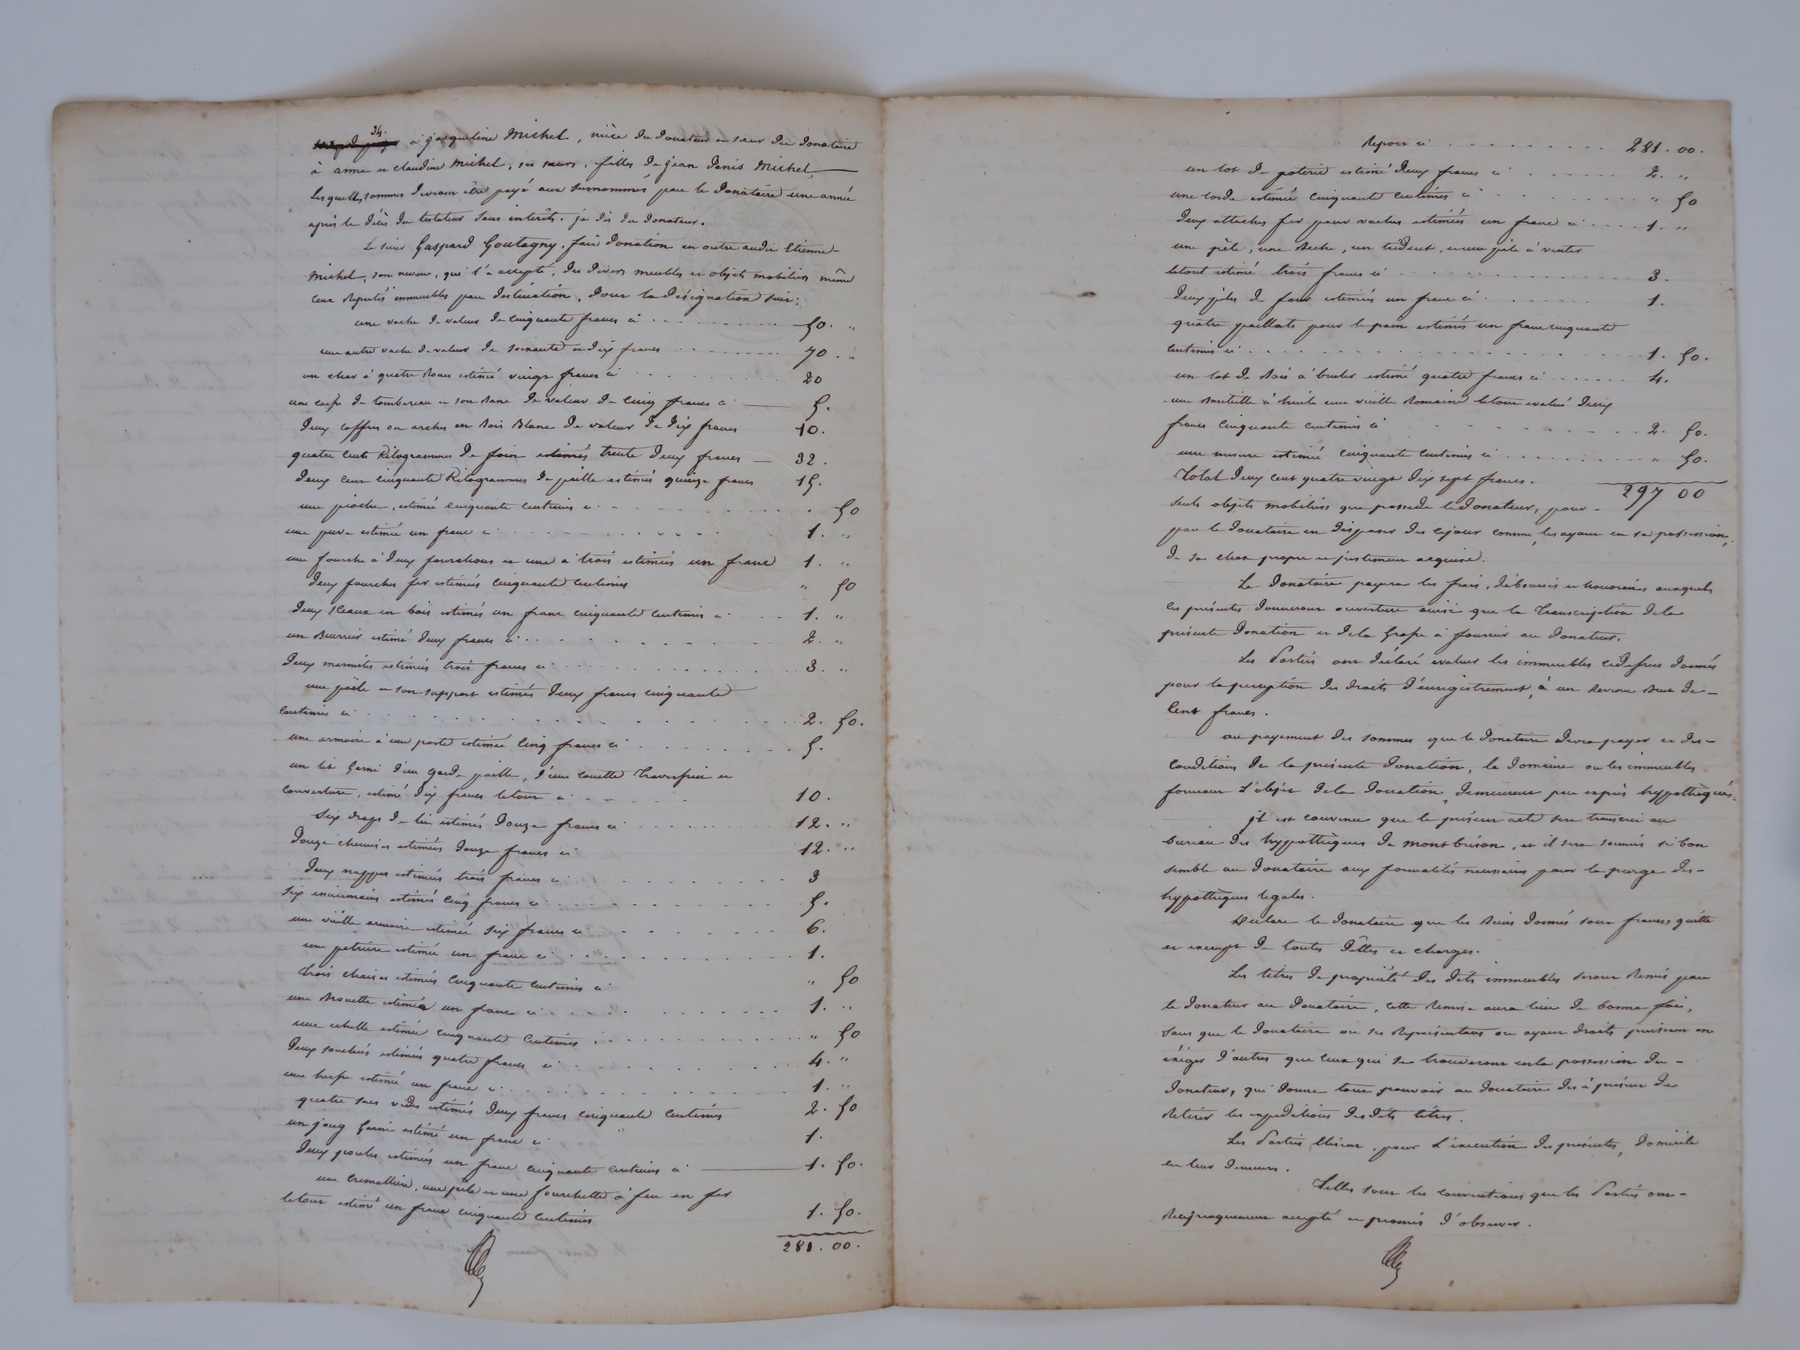 34.
à jacqueline Michel, nièce du donateur et sœur du donataire
à anne et claudine Michel, ses sœurs, filles de jean denis Michel,
Lesquelles sommes devront être payé aux surnommés par le donataire une année
après le décès du testateur sans intérêts. je dis du donateur.
Le sieur Gaspard Goutagny, fait donation en outre audit Etienne
Michel, son neveu, qui l'a accepté, des divers meubles et objets mobiliers même
ceux réputés immeubles par destination, dont la désignation suit:
une vache de valeur de cinquante francs ci 50. "
une autre vache de valeur de soixante et dix francs 70. "
un char à quatre roues estimé vingt francs ci 20
une caisse de tombereau et son banc de valeur de cinq francs ci 5.
deux coffres ou arches en bois blanc de valeur de dix francs 10.
quatre cents Kilogrammes de foin estimés trente deux francs 32.
deux cent cinquante Kilogrammes de paille estimés quinze francs 15.
une pioche, estimée cinquante centimes ci " 50
une estimée un franc ci 1. "
une fourche à deux fourchons et une à trois estimées un franc 1. "
deux fourches fer estimées cinquante centimes " 50
deux sceaux en bois estimés un franc cinquante centimes ci 1. "
un beurrier estimé deux francs ci 2. "
deux marmites estimées trois francs ci 3. "
une poële et son support estimés deux francs cinquante
centimes ci 2. 50.
une armoire à une porte estimée cinq francs ci 5.
un lit garni d'un garde paille, d'une couette traversin et
couverture, estimé dix francs letout ci 10.
six draps de lit estimés douze francs ci 12. "
douze chemises estimées douze francs ci 12. "
deux nappes estimées trois francs ci 3
six essuiemains estimés cinq francs ci 5.
une vieille armoire estimée six francs ci 6.
une petriere estimée un franc ci 1.
trois chaises estimées cinquante centimes ci " 50
une brouette estimée un franc ci 1. "
une échelle estimée cinquante centimes " 50
deux estimés quatre francs ci 4. "
une herse estimée un franc ci 1. "
quatre sacs vides estimés deux francs cinquante centimes 2. 50
un joug garni estimé un franc ci 1.
deux poules estimées un franc cinquante centimes ci 1. 50.
une cremaillère, une pèle et une fourchette à feu en fer
letout estimé un franc cinquante centimes 1. 50.
281. 00.
Report ci 281. 00.
un lot de poterie estimé deux francs ci 2. "
une corde estimée cinquante centimes ci " 50
deux attaches fer pour vaches estimées un franc ci 1. "
une pèle, une bèche, un trident, et une pèle à vanter
letout estimé trois francs ci 3.
deux pèles de four estimées un franc ci 1.
quatre paillats pour le pain estimés un franc cinquante
centimes ci 1. 50.
un lot de bois à bruler estimé quatre francs ci 4.
une bouteille à huile une vieille romaine letout evalué deux
francs cinquante centimes ci 2. 50.
une mesure estimée cinquante centimes ci " 50.
Total deux cent quatre vingt dix sept francs. 297 00
seuls objets mobiliers que possede le donateur, pour
par le donataire en disposer dès cejour comme les ayant en sa possession,
de sa chose propre et justement acquise.
Le donataire payera les frais, déboursés et honoraires auxquels
les présentes donneront ouverture ainsi que la transcription dela
présente donation et dela Grosse à fournir au donateur.
Les Parties ont déclaré evaluer les immeubles cidessus donnés
pour la perception des droits d'enregistrement, à un revenu brut de
cent francs.
au payement des sommes que le donataire devra payer et des
conditions de la présente donation, le domaine ou les immeubles
formant l'objet dela donation, demeurent par exprès hypothèqués.
jl est convenu que le présent acte sera transcrit au
bureau des hypothèques de montbrison, et il sera soumis si bon
semble au donataire aux formalités nécessaires pour la purge des
hypothèques légales.
Déclare le donateur que les biens donnés sont francs, quitte
et exempt de toutes dêttes et charges.
Les titres de propriété des dits immeubles seront remis par
le donateur au donataire, cette remise aura lieu de bonne foi,
sans que le donataire ou ses représentans ou ayant droits puissent en
éxiger d'autres que ceux qui se trouveront enla possession du
donateur, qui donne tout pouvoir au donataire dès à présent de
retirer les expéditions desdits titres.
Les Parties élisent, pour l'éxecution des présentes, domicile
en leur demeure.
Telles sont les conventions que les Parties ont
réciproquement accepté et promis d'observer.